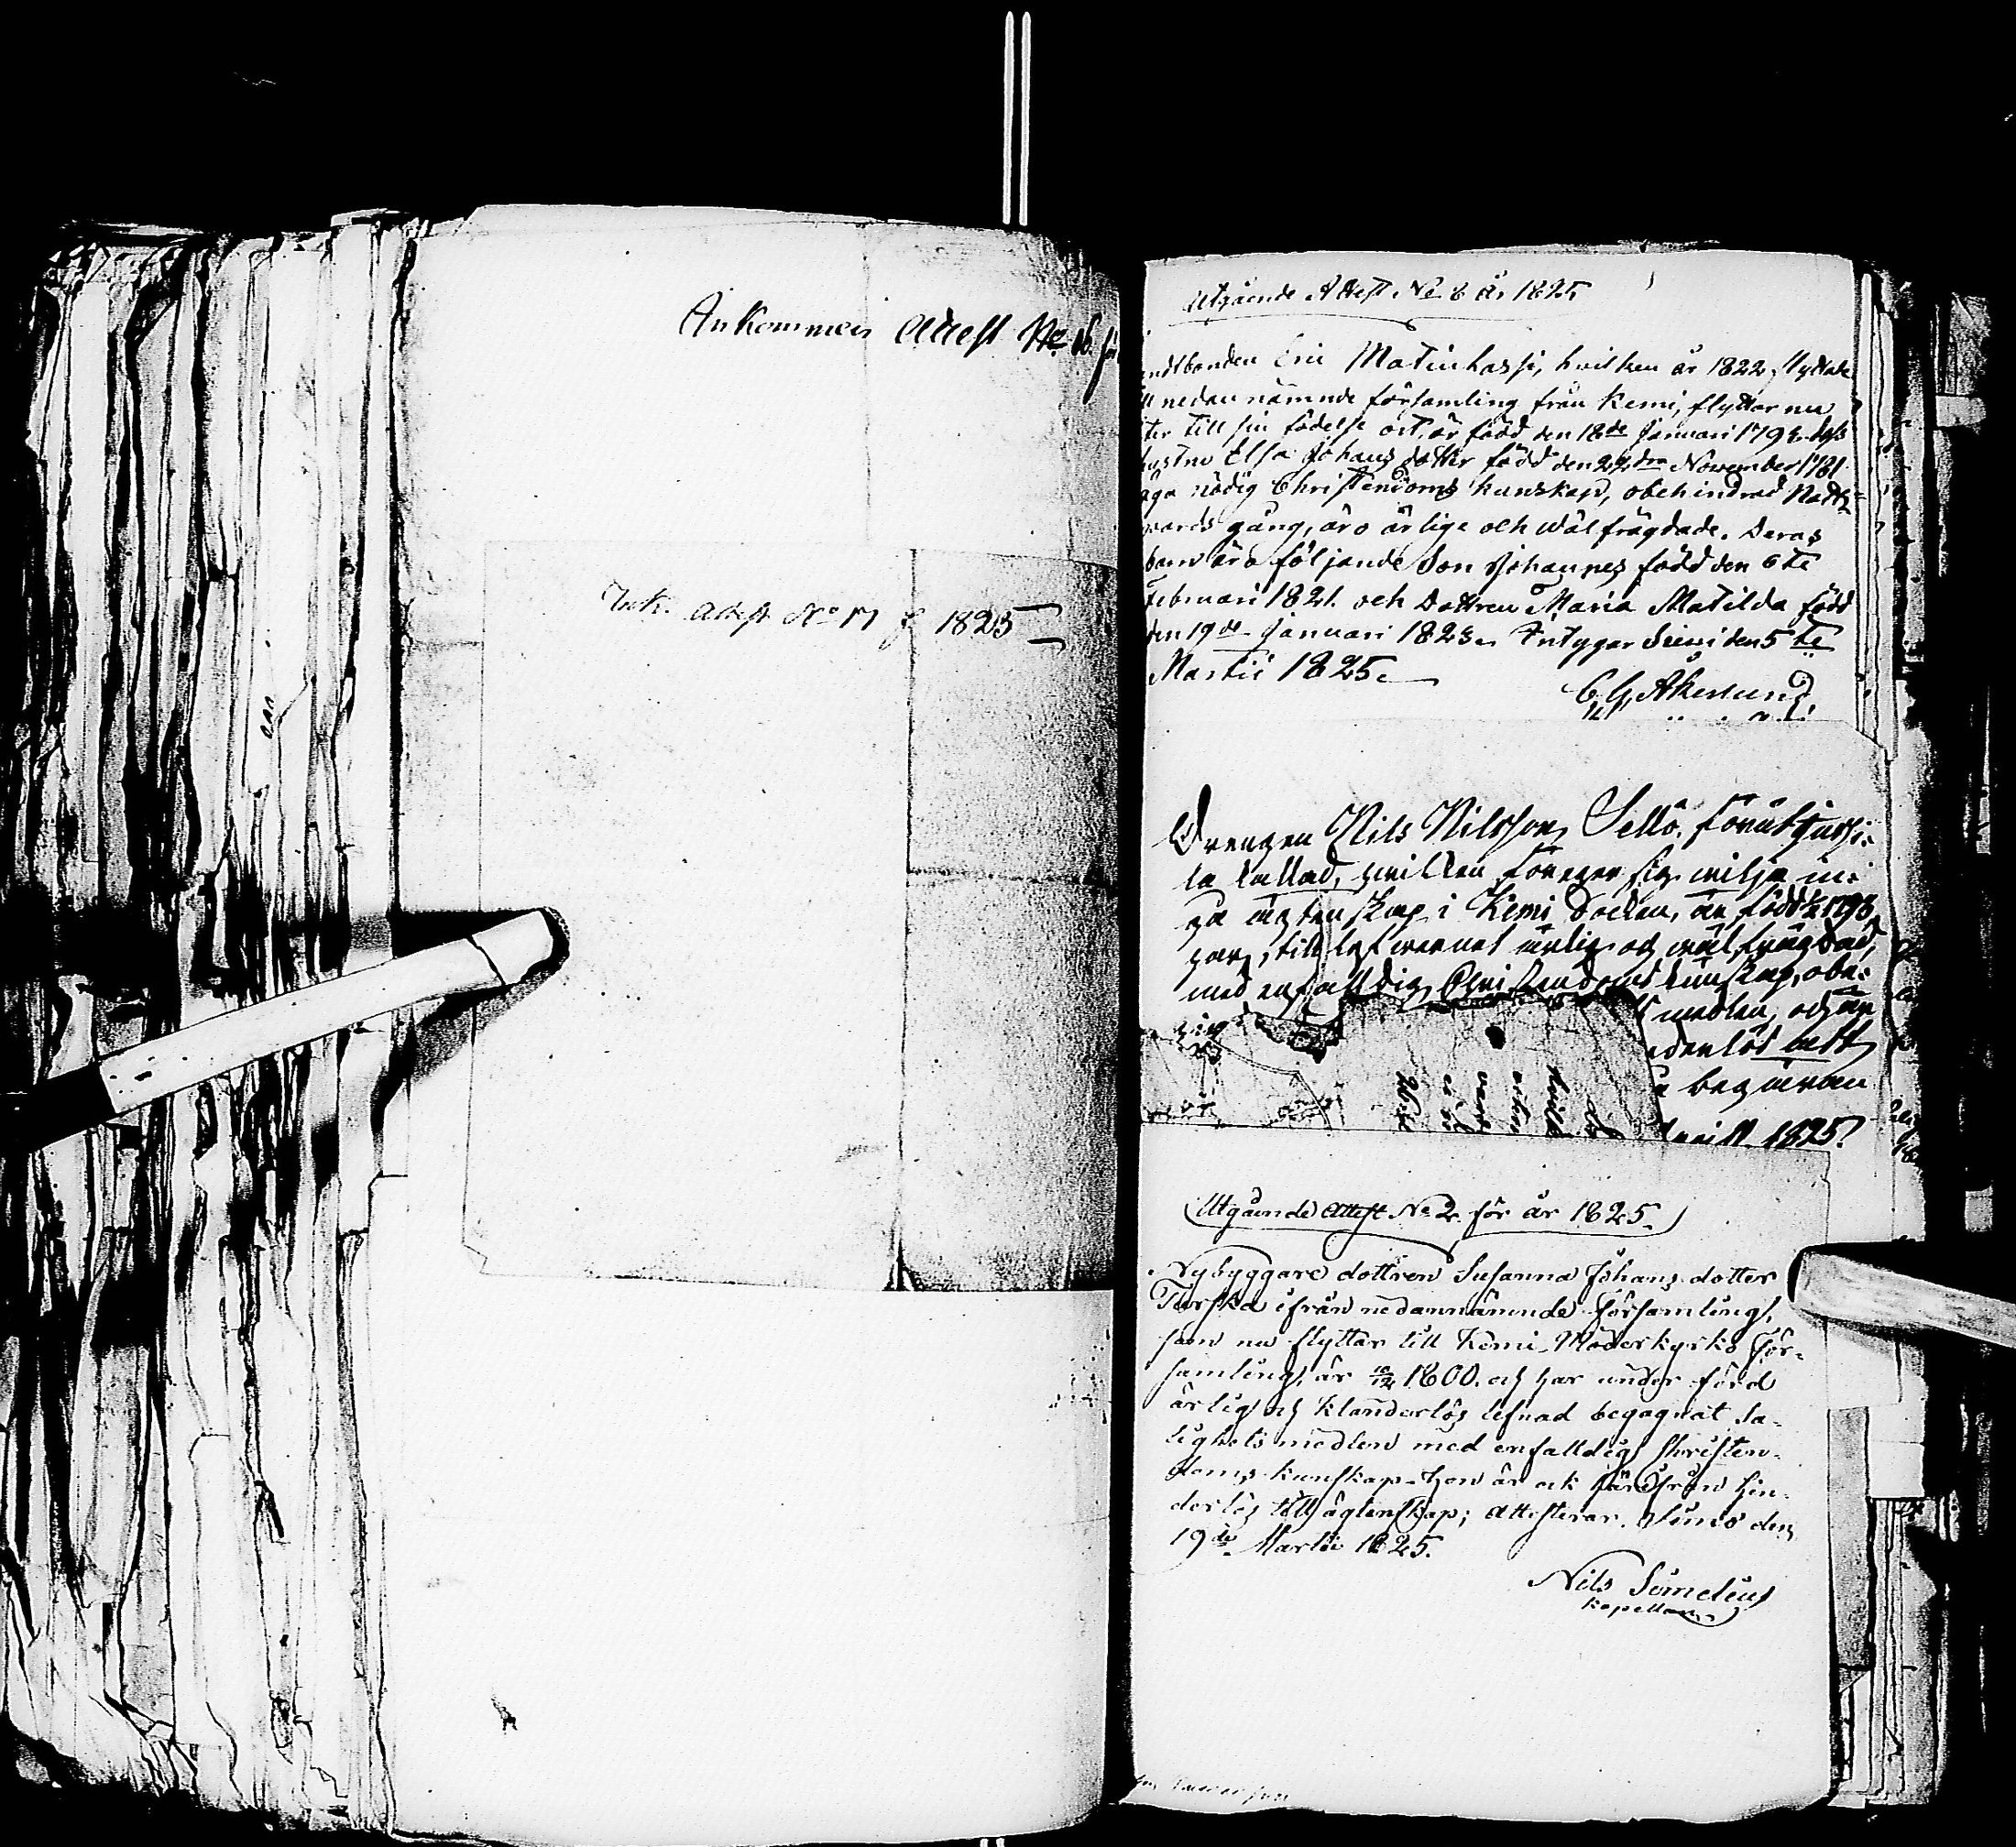 Ankommen Attest No 16. för
Ink. Attest No 17 f 1825
Utgående Attest No 8 år 1825
ndtbonden Eric Matinlassi, hvilken år 1822 flyttade
ll nedan nämnde församling från Kemi, flyttar nu
ter till sin födelse ort, är född den 18de Januari 179 dess
hustru Elsa Johans dotter född den 22dra November 1781
äga nödig Christendoms kunskap, obehindrad Natt-
vards gång, äro ärlige och wälfrägdade. Deras
barn äro följande Son Johannes född den 6te
Februari 1821. och Dottren Maria Matilda född
den 19de Januari 1823. Intygar Simi den 5te
Martii 1825.
C. G. Åkerlund
Drengen Nils Nilsson Sellö, förut
la kallad, hvilken föreger sig vilja in-
gå ägtenskap i Kemi Socken, är född 1793
har, till legt warnat ärlig och wäl frägdad,
med enfalldig Christendoms kunskap, obe-
medlen, och är
derlös till
begäran
April 1825.
Utgående Attest No 2. för år 1825.
Nybyggare dottren Susanna Johans dotter
Turska ifrån nedannämnde församling,
som nu flyttar till Kemi Moderkyrko För-
samling, är 1800. och har under förd
ärlig och klanderlös lefnad begagnat Sa-
lighets medlen med enfalldig Christen-
doms kunskap. Hon är ock härifrån hin-
derlös till ägtenskap; attesterar. Simo den
19de Martii 1825.
Nils Simelius
Kapellan